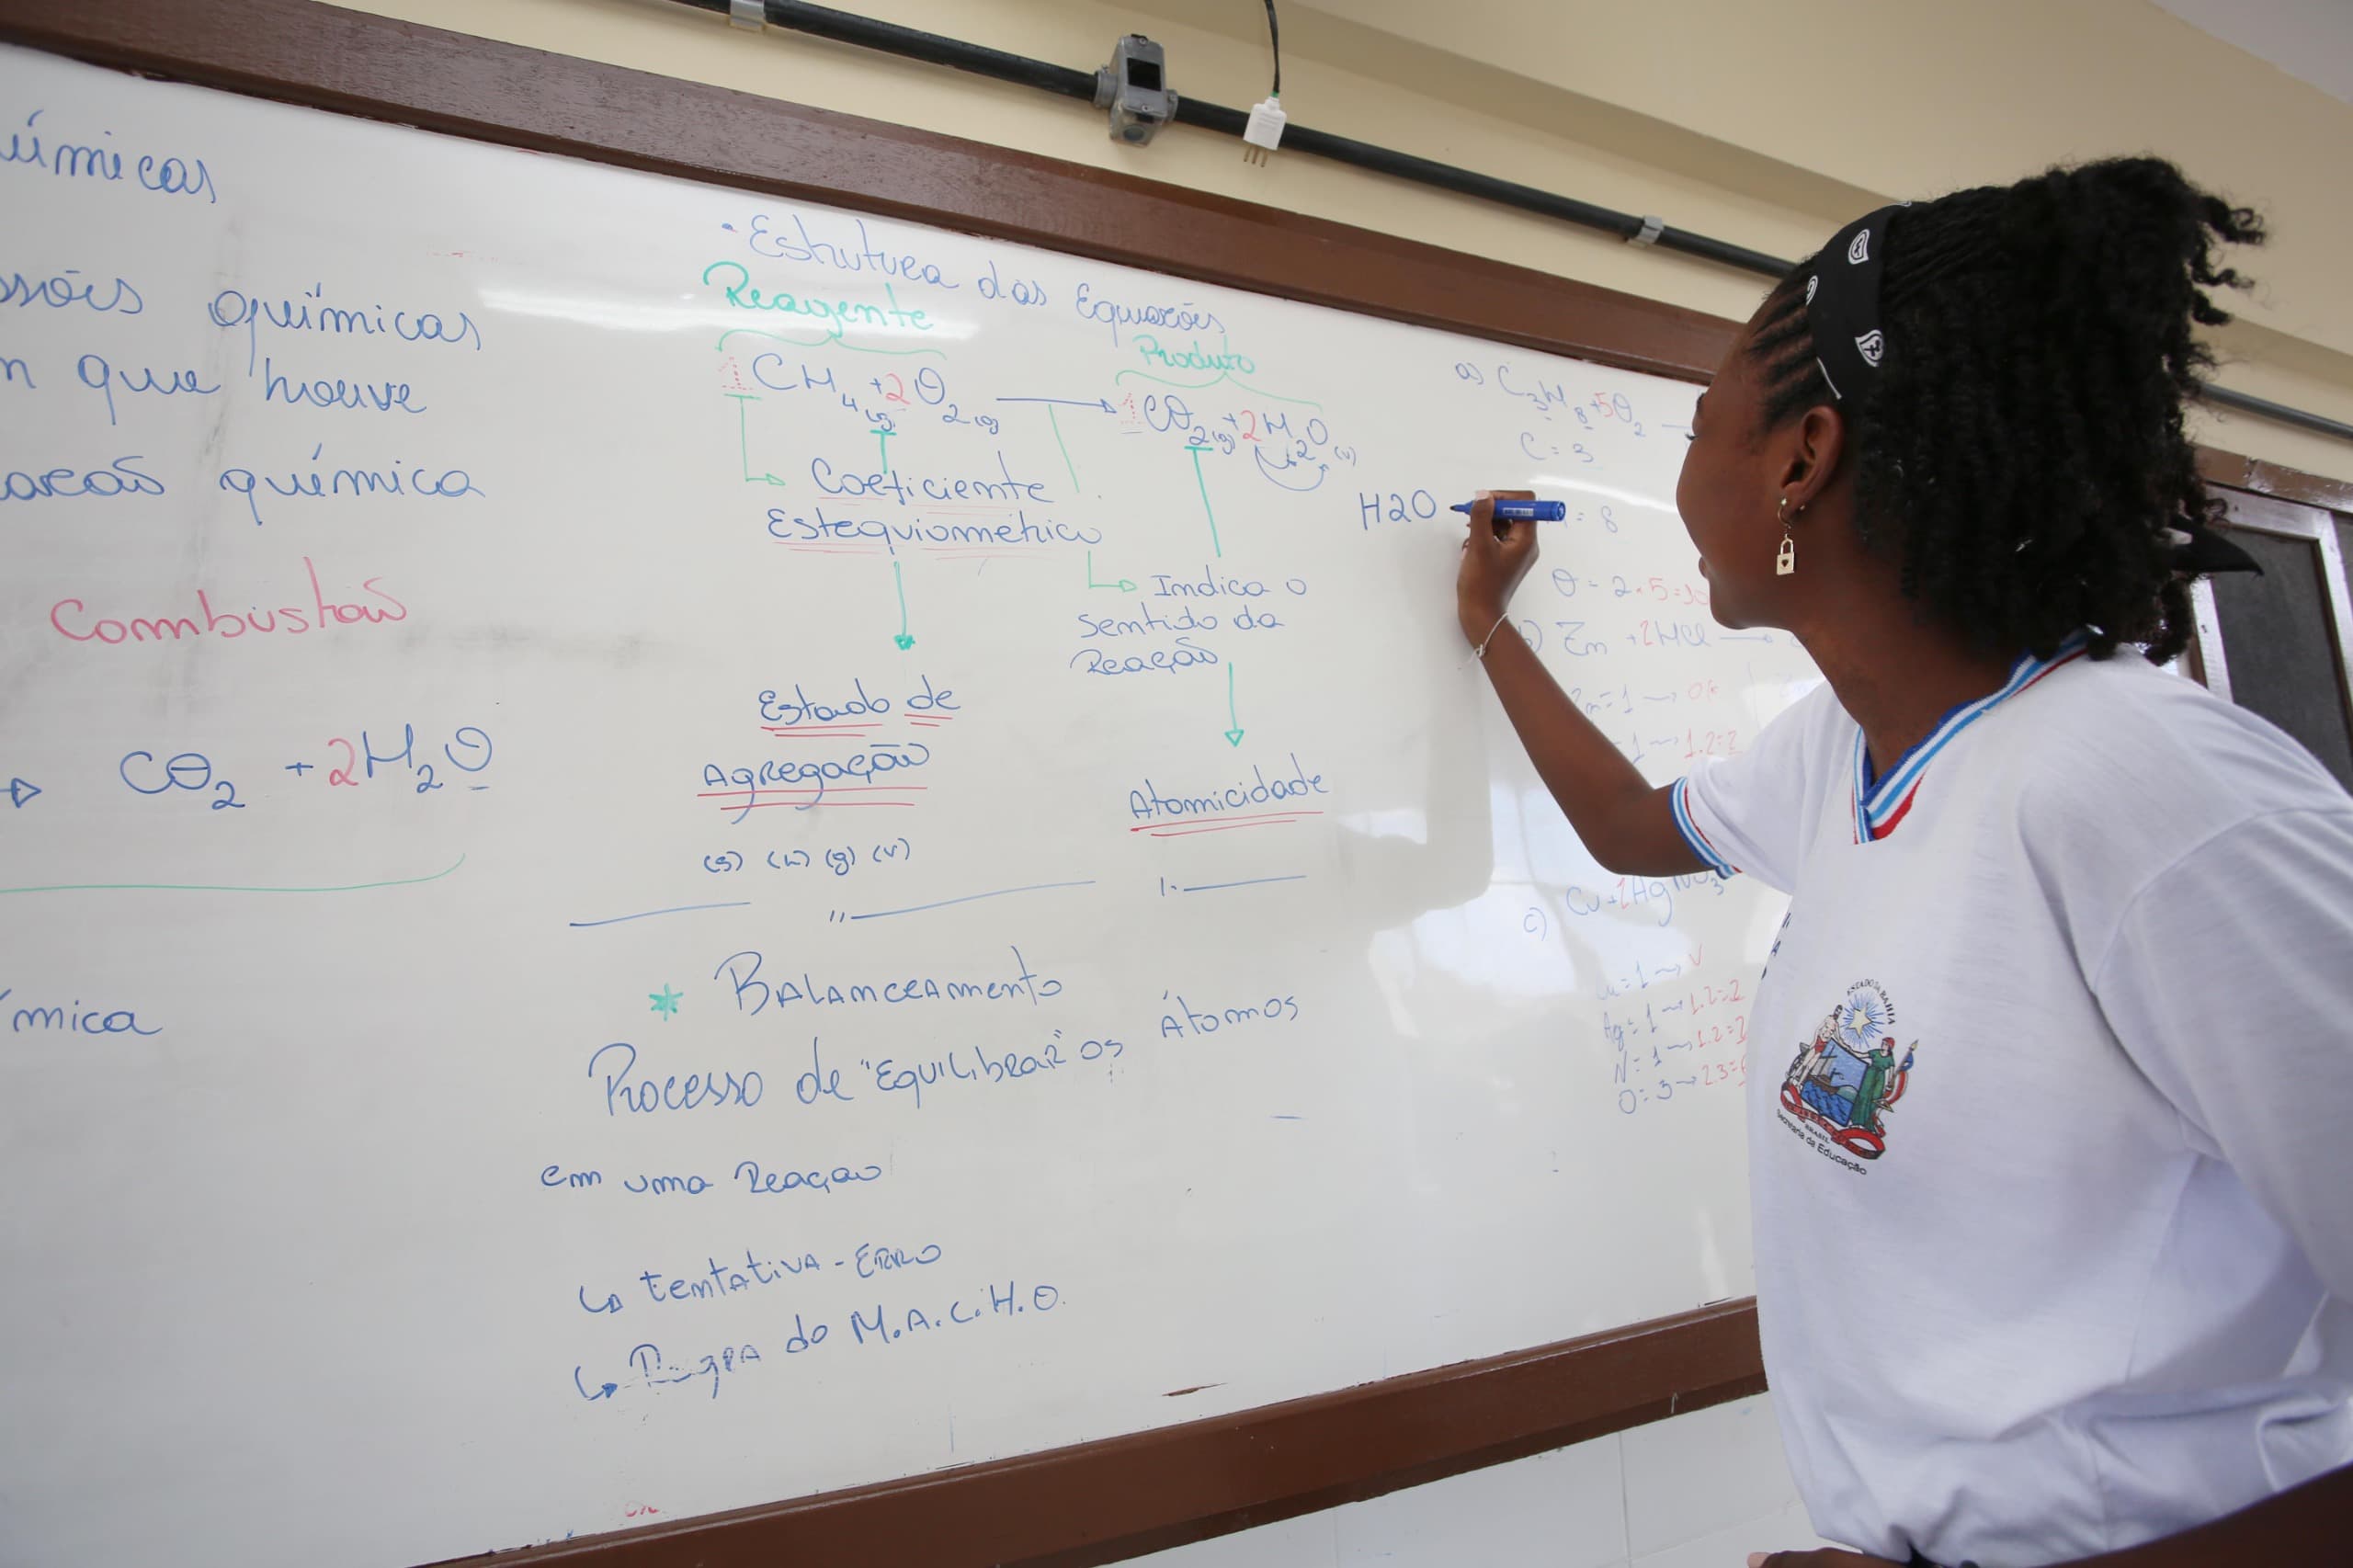 uímicas
ssões químicas
m que houve
química
Combustão
CO2 + 2H2O
mica
• Estrutura das Equações
Reagente
Produto
1CH4(g) + 2O2(g) → 1CO2(g) + 2H2O(v)
Coeficiente
Estequiométrico
Indica o
sentido da
Reação
Estado de
Agregação
(s) (L) (g) (v)
Atomicidade
* Balanceamento
Processo de "Equilibrar" os Átomos
em uma Reação
↳ tentativa - Erro
↳ Regra do M.A.C.H.O.
H2O
a) C3H8 + 5O2
C = 3
= 8
O = 2.5=10
b) Zn + 2HCl →
Zn = 1 → OK
1 → 1.2=2
c) Cu + 2AgNO3
Cu = 1 → V
Ag = 1 → 1.2=2
N = 1 → 1.2=2
O = 3 → 2.3=6
ESTADO DA BAHIA
BRASIL
Secretaria da Educação